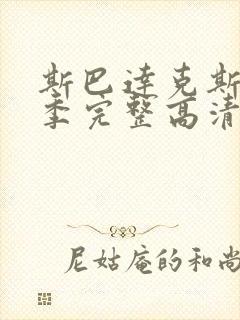 斯巴达克斯
季完整高清
尼姑庵的和尚